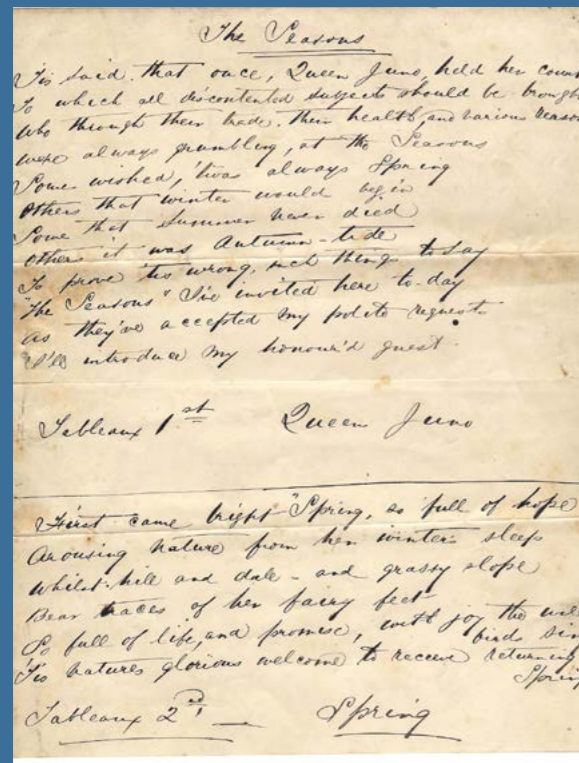 The Seasons
Tis said, that once, Queen Juno, held her court
To which all discontented subjects should be brough
Who through their trade, their health, and various reason
were always grumbling, at the Seasons
Some wished, 'twas always Spring
Others that winter would begin
Some that Summer never died
others it was Autumn-tide
To prove tis wrong, such things to say
"The Seasons" I've invited here to-day
as they've accepted my polite request
I'll introduce my honour'd guest.
Tableaux 1st Queen Juno
First came bright "Spring, so full of hope
Arousing nature from her winters sleep
Whilst hill and dale - and grassy slope
Bear traces of her faery feet
So full of life, and promise, with joy the wil
birds sin
'Tis natures glorious welcome to receive returning
Spring
Tableaux 2nd — Spring